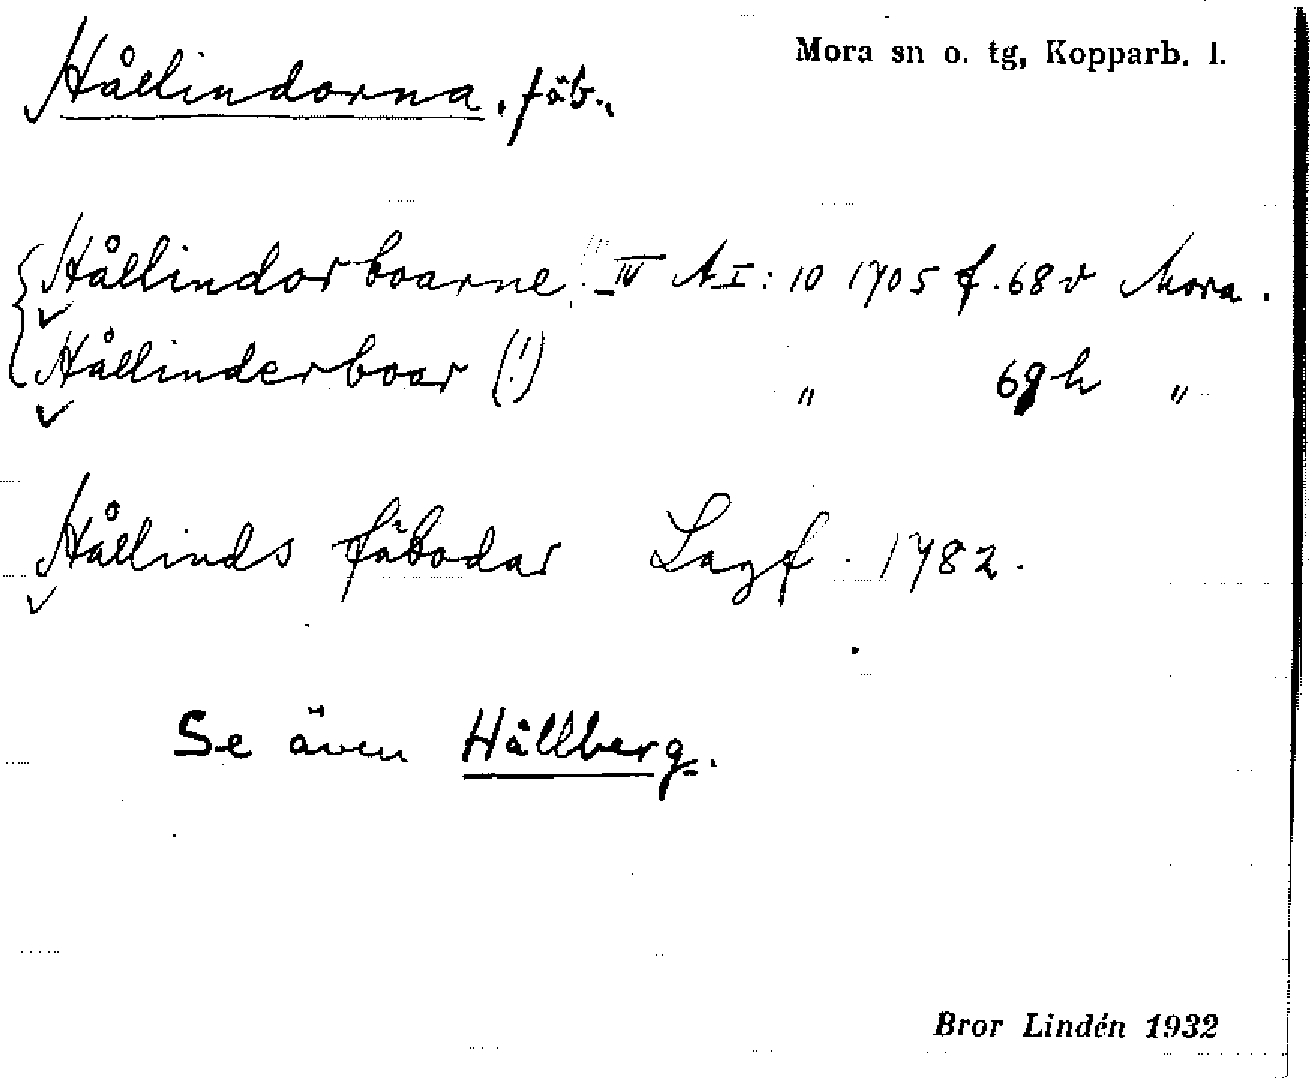 Mora sn o. tg, Kopparb. l.
Hållindorna, fäb.,
Hållindorboarne IV A I: 10 1705 f. 68 v Mora.
Hållinderboar (!) " 69 h "
Hållinds fäbodar Lagf. 1782.
Se även Hållberg.
Bror Lindén 1932